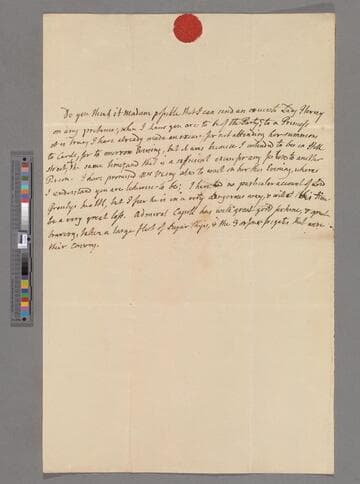 Do you think it Madam possible that I can send an excuse to Lady Hervey
on any pretence, when I know you are to be of the Party, & to a Princess
it is true, I have already made an excuse for not attending her summons
to Cards, for to morrow Evening, but it was because I intended to be in
Street, the same time, and that is a sufficient excuse for any to another
Person. I have promised Mr also to wait on her this Evening, where
I understand you are likewise to be; I have no particular account of Lord
health, but I fear he is in a very dangerous way, & will be
be a very great loss. Admiral Capell has with great good fortune, & great
bravery, taken a large fleet of Sugar Ships, & the 3 or four frigates that were
their Convoy.